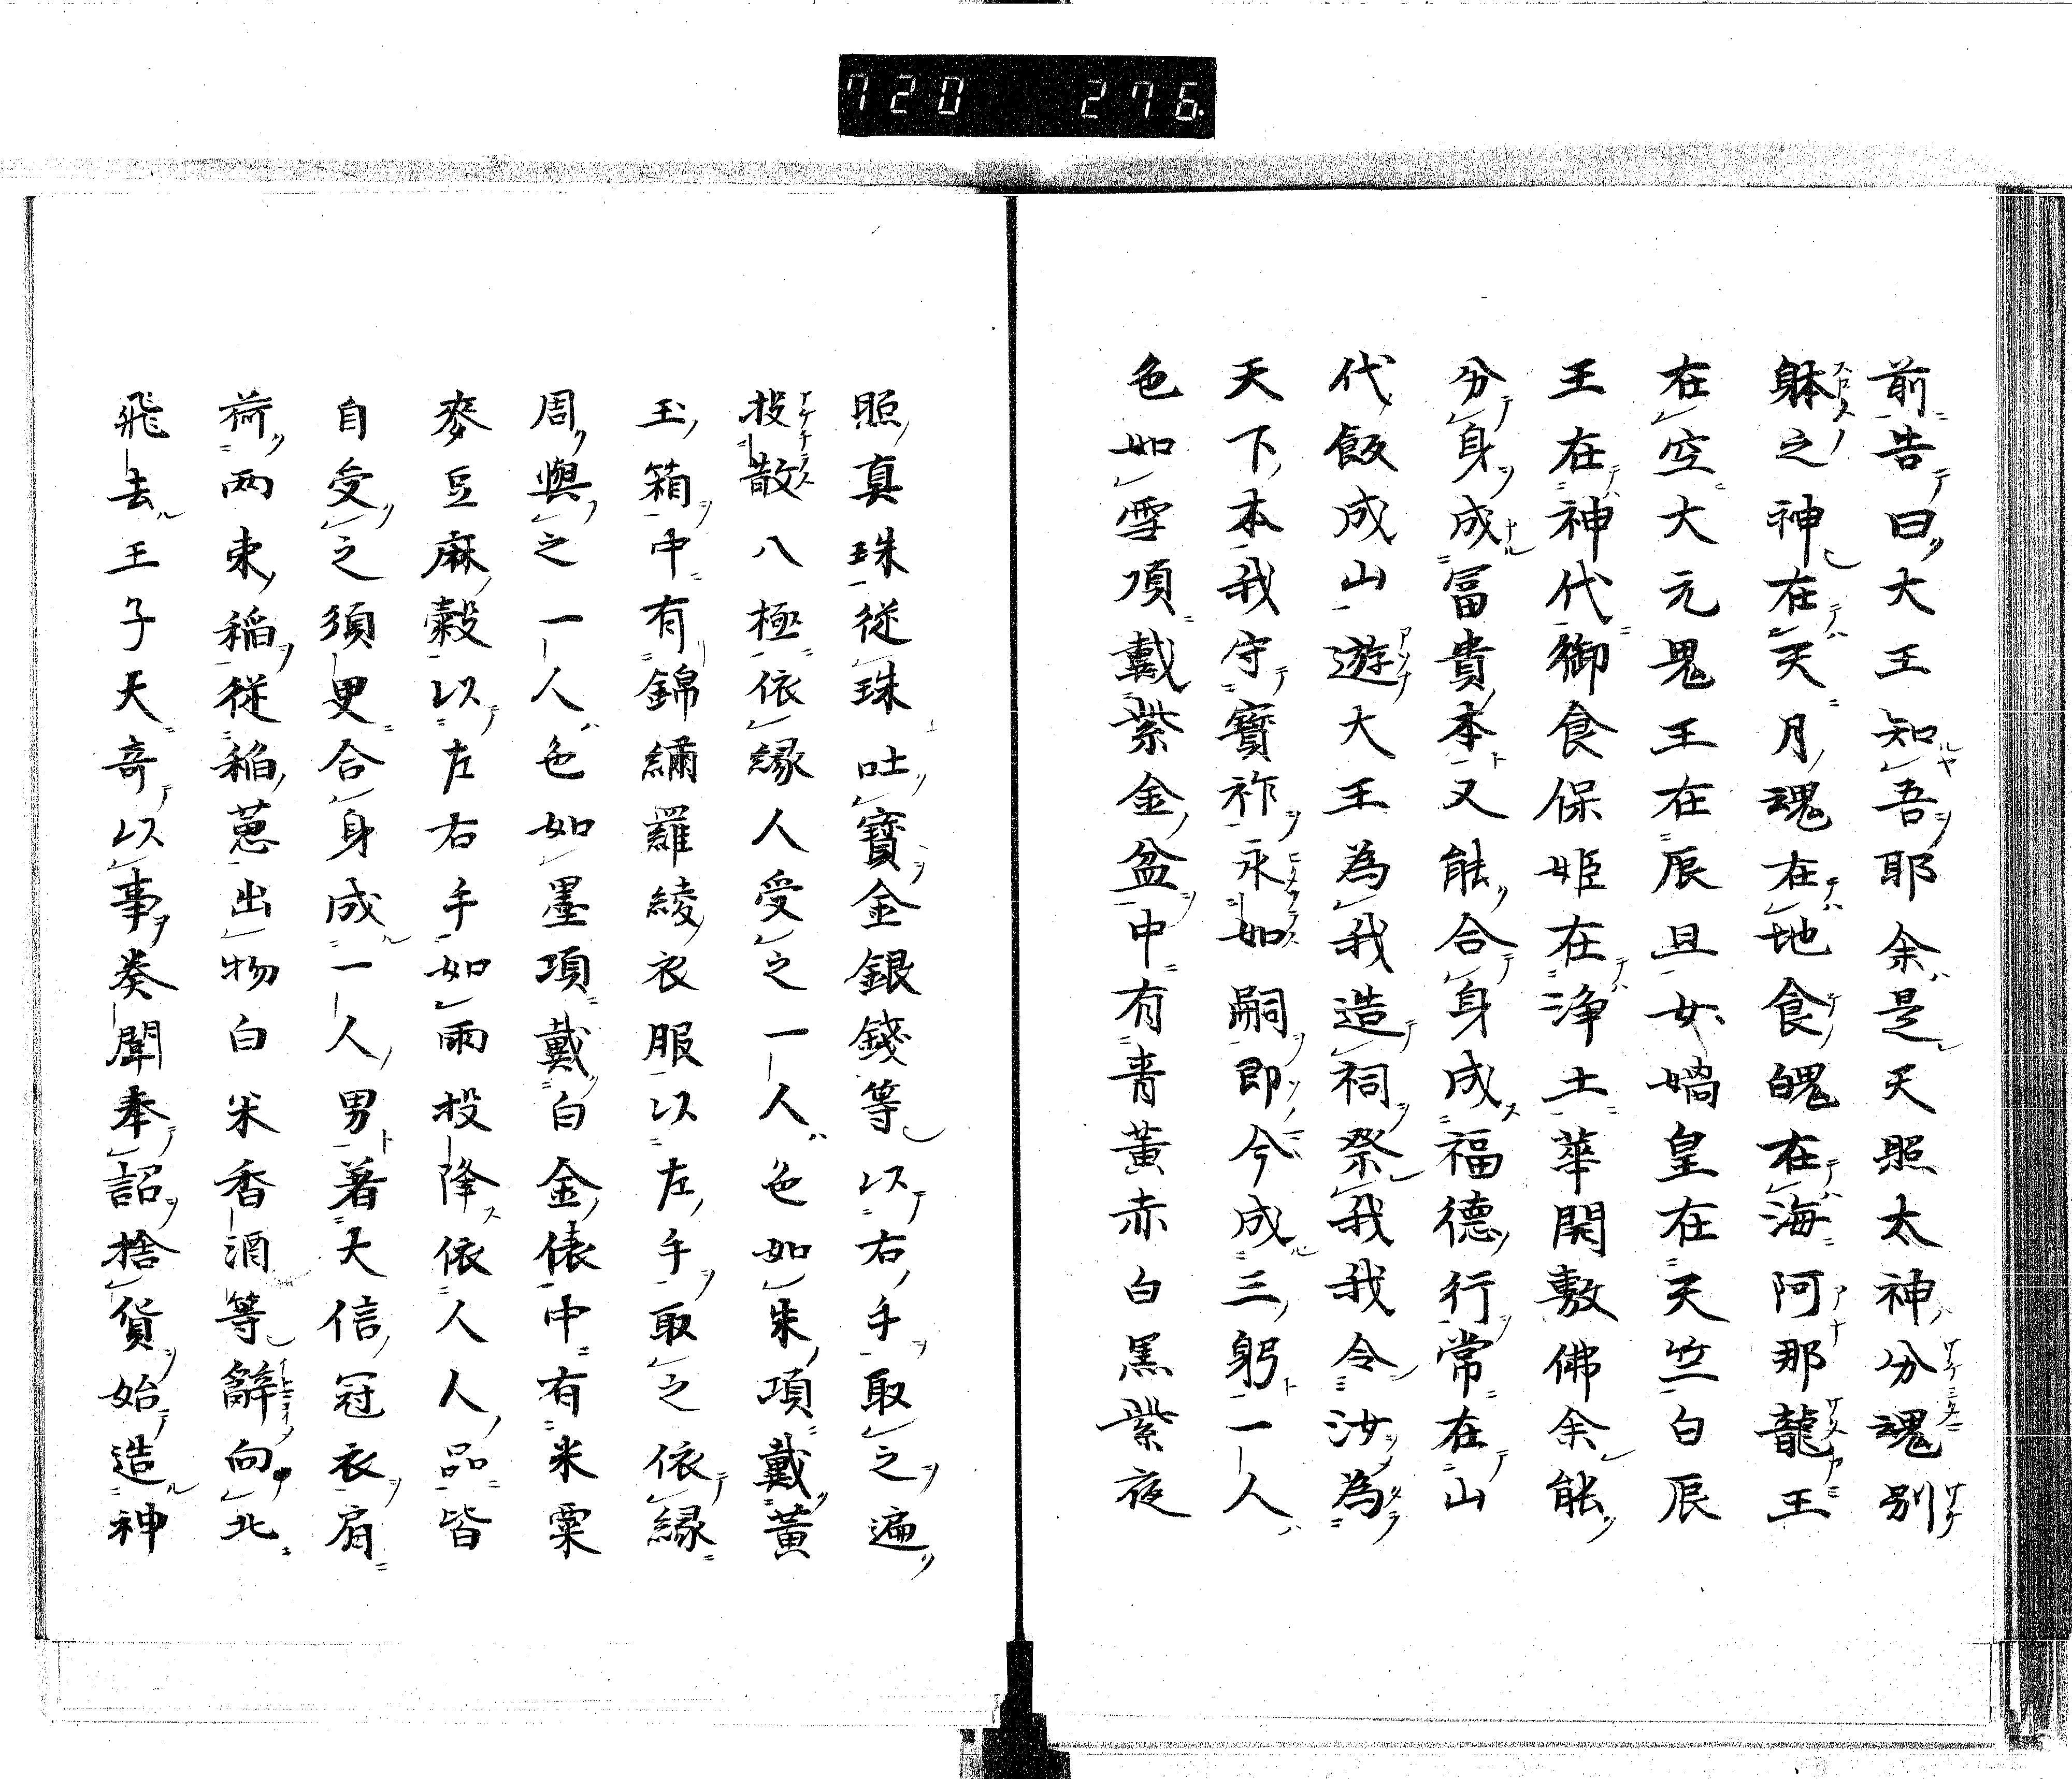 720 276
前告曰大王知吾耶余是天照太神分魂別
躰之神在天月魂在地食魄在海阿那龍王
在空大元鬼王在辰旦女媧皇在天竺白辰
王在神代御食保姫在浄土華開敷佛余能
分身成冨貴本又能合身成福德行常在山
代飯成山遊大王為我造祠祭我我令汝為
天下本我守寶祚永如嗣即今成三躬一人
色如雪項戴紫金盆中有青黃赤白黒紫夜
照真珠從珠吐寶金銀錢等以右手取之遍
投散八極依縁人受之一人色如朱項戴黃
玉箱中有錦繡羅綾衣服以左手取之依縁
周與之一人色如墨項戴白金俵中有米粟
麥豆麻穀以左右手如雨投降依人人品皆
自受之須臾合身成一人男著大信冠衣肩
荷両束稲従稲葱出物白米香酒等辭向北
飛去王子天奇以事奏聞奉詔捨貨始造神